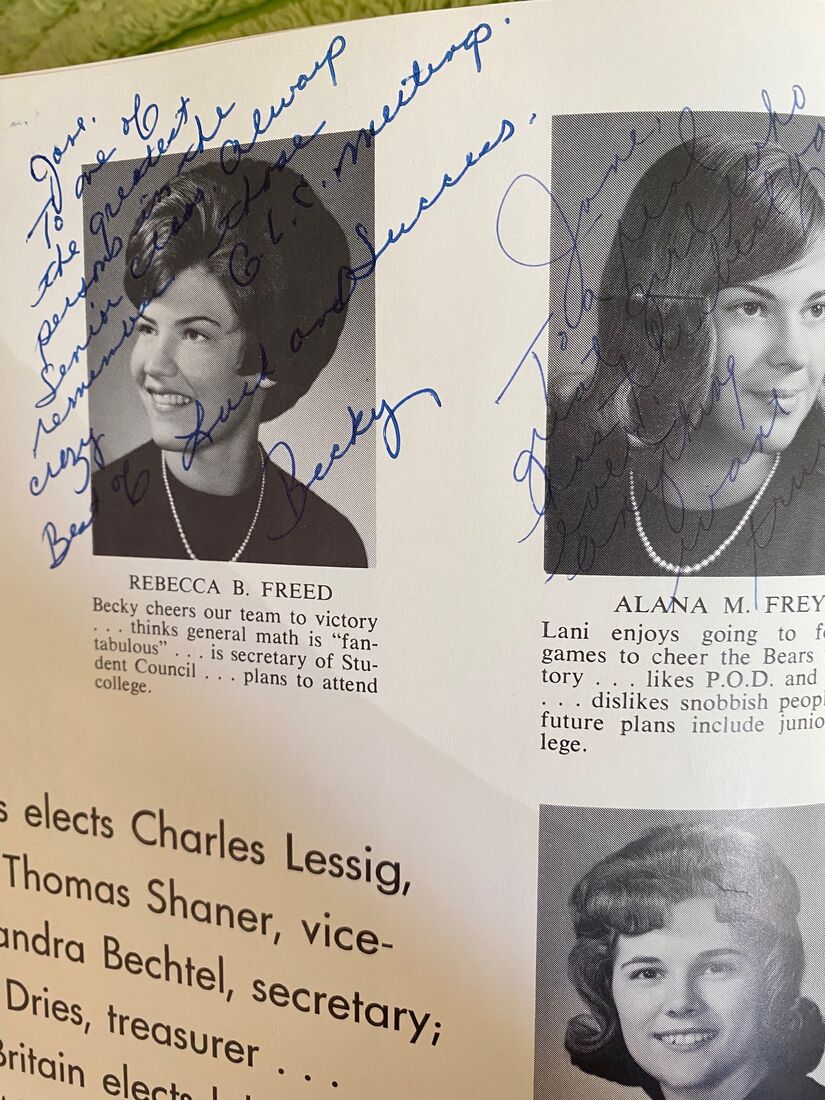 Jane.
To one of
the greatest
persons in the
Senior class always
remember those
crazy G.L.C. meetings.
Best of Luck and Success.
Becky
REBECCA B. FREED
Becky cheers our team to victory
. . . thinks general math is “fan-
tabulous” . . . is secretary of Stu-
dent Council . . . plans to attend
college.
Jane,
To a real
great girl who
has
everything
want
ALANA M. FREY
Lani enjoys going to
games to cheer the Bears
tory . . . likes P.O.D. and
. . . dislikes snobbish peopl
future plans include junio
lege.
s elects Charles Lessig,
Thomas Shaner, vice-
andra Bechtel, secretary;
Dries, treasurer . . .
Britain elects